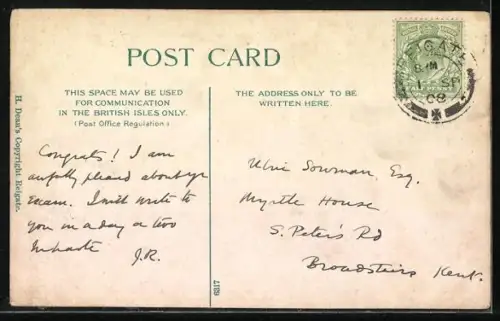 POST CARD
THIS SPACE MAY BE USED
FOR COMMUNICATION
IN THE BRITISH ISLES ONLY.
(Post Office Regulation)
THE ADDRESS ONLY TO BE
WRITTEN HERE.
H. Dean's Copyright, Reigate.
Congrats! I am
awfully pleased about yr
exam. I will write to
you in a day or two
In haste
J.R.
6317
REIGATE
SP
08
Sowman, Esq.
Myrtle House
S. Peter's Rd
Broadstairs Kent.